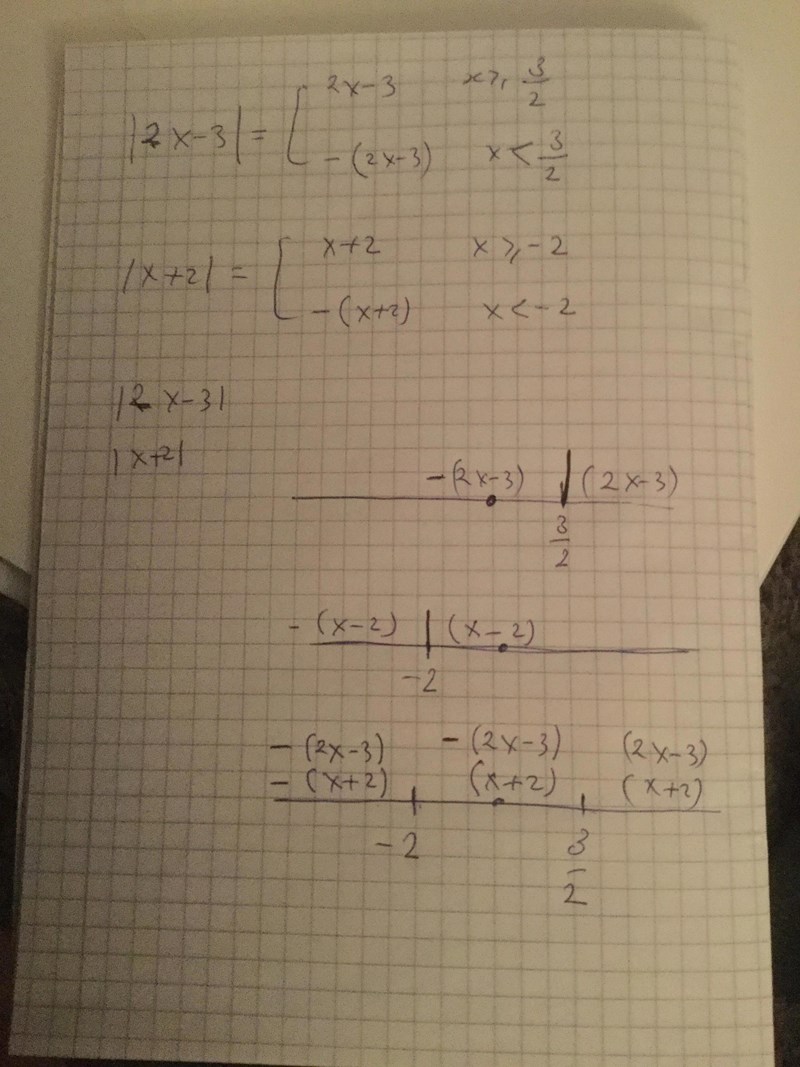 |2x-3| = { 2x-3 x ≥ 3/2
-(2x-3) x < 3/2
|x+2| = { x+2 x ≥ -2
-(x+2) x < -2
|2x-3|
|x+2|
-(2x-3) (2x-3)
3/2
-(x-2) (x-2)
-2
-(2x-3) -(2x-3) (2x-3)
-(x+2) (x+2) (x+2)
-2 3/2